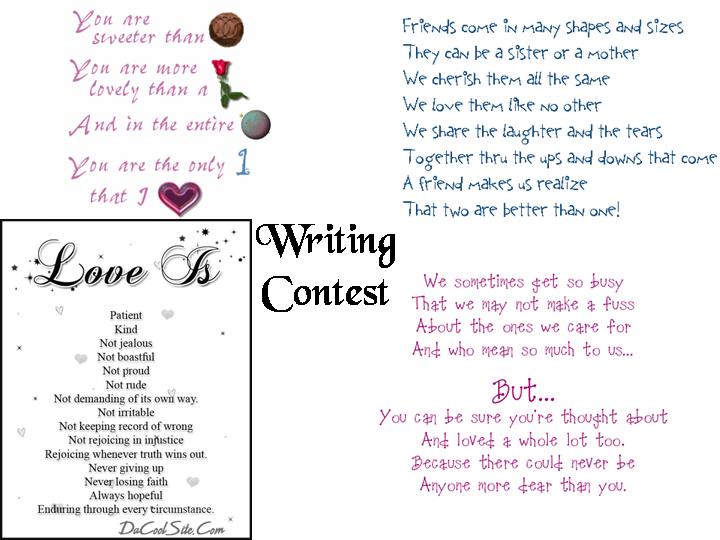 You are
sweeter than
You are more
lovely than a
And in the entire
You are the only 1
that I
Friends come in many shapes and sizes
They can be a sister or a mother
We cherish them all the same
We love them like no other
We share the laughter and the tears
Together thru the ups and downs that come
A friend makes us realize
That two are better than one!
Writing
Contest
Love Is
Patient
Kind
Not jealous
Not boastful
Not proud
Not rude
Not demanding of its own way.
Not irritable
Not keeping record of wrong
Not rejoicing in injustice
Rejoicing whenever truth wins out.
Never giving up
Never losing faith
Always hopeful
Enduring through every circumstance.
DaCoolSite.Com
We sometimes get so busy
That we may not make a fuss
About the ones we care for
And who mean so much to us...
But...
You can be sure you're thought about
And loved a whole lot too.
Because there could never be
Anyone more dear than you.